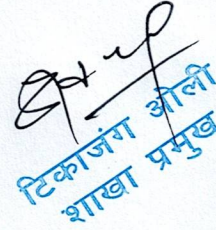 टिकाजंग ओली
शाखा प्रमुख